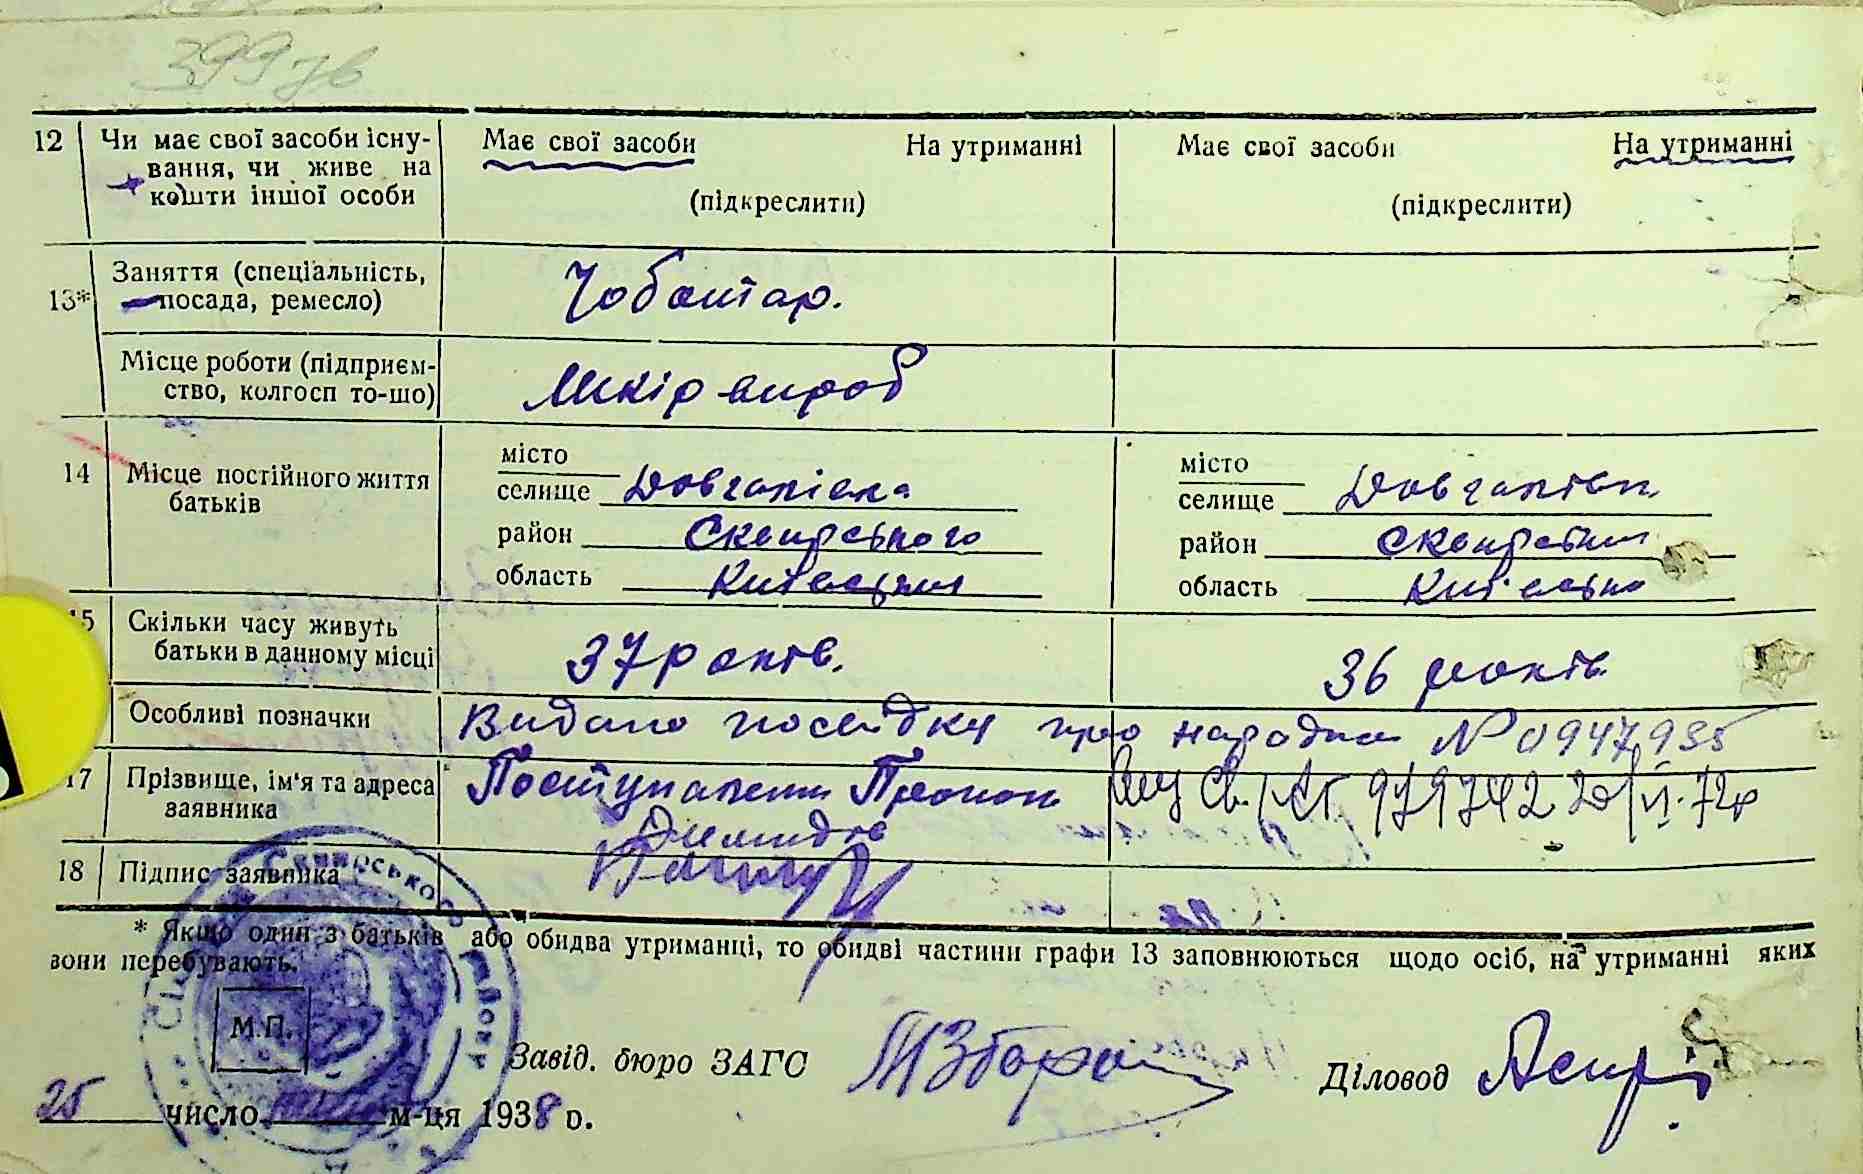 399
12 Чи має свої засоби існу-
вання, чи живе на
кошти іншої особи
Має свої засоби На утриманні
(підкреслити)
Має свої засоби На утриманні
(підкреслити)
13* Заняття (спеціальність,
посада, ремесло)
Чоботар.
Місце роботи (підприєм-
ство, колгосп то-що)
Шкір вироб
14 Місце постійного життя
батьків
місто
селище Довгалівка
район Сквирського
область Київська
місто
селище Довгалівка
район Сквирський
область Київська
15 Скільки часу живуть
батьки в данному місці
37 років.
36 років.
Особливі позначки
Видано посвідку про народження № 0947935
17 Прізвище, ім'я та адреса
заявника
Прокоп
Демидов
979742 20/VI-72р
18 Підпис заявника
* Якщо один з батьків або обидва утриманці, то обидві частини графи 13 заповнюються щодо осіб, на утриманні яких
вони перебувають.
М.П.
Завід. бюро ЗАГС
Діловод
25 число м-ця 1938 р.